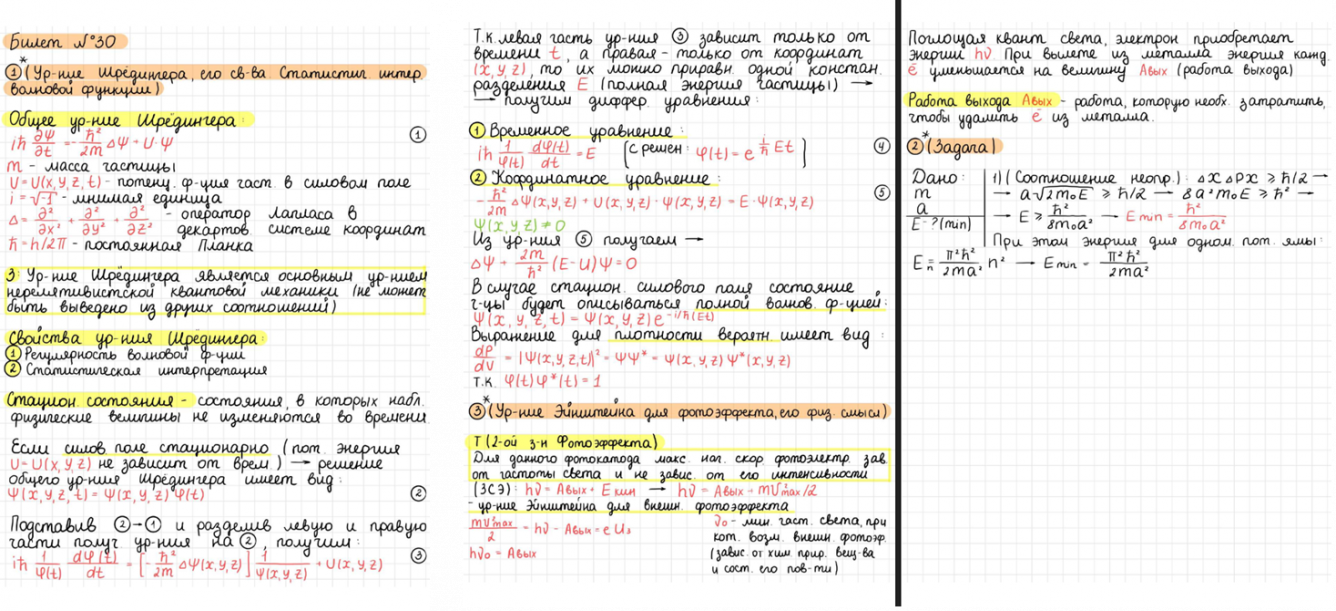 Билет №30
①* (Ур-ние Шрёдингера, его св-ва Статистич. интер.
волновой функции)
Общее ур-ние Шрёдингера:
iħ ∂Ψ/∂t = -ħ²/2m ΔΨ + U·Ψ ①
m - масса частицы
U = U(x,y,z,t) - потенц. ф-ция част. в силовом поле
i = √-1 - мнимая единица
Δ = ∂²/∂x² + ∂²/∂y² + ∂²/∂z² - оператор Лапласа в
декартов. системе координат
ħ = h/2π - постоянная Планка
З: Ур-ние Шрёдингера является основным ур-нием
нерелятивистской квантовой механики (не может
быть выведено из других соотношений)
Свойства ур-ния Шрёдингера:
① Регулярность волновой ф-ции
② Статистическая интерпретация
Стацион. состояния - состояния, в которых набл.
физические величины не изменяются во времени
Если силов. поле стационарно (пот. энергия
U = U(x,y,z) не зависит от врем.) → решение
общего ур-ния Шрёдингера имеет вид:
Ψ(x,y,z,t) = Ψ(x,y,z) φ(t) ②
Подставив ②→① и разделив левую и правую
части получ. ур-ния на ②, получим:
iħ 1/φ(t) dφ(t)/dt = [-ħ²/2m ΔΨ(x,y,z)] 1/Ψ(x,y,z) + U(x,y,z) ③
Т.к. левая часть ур-ния ③ зависит только от
времени t, а правая - только от координат
(x,y,z), то их можно приравн. одной констан.
разделения E (полная энергия частицы) →
→ получим диффер. уравнения:
① Временное уравнение:
iħ 1/φ(t) dφ(t)/dt = E [с решен: φ(t) = e^(i/ħ Et)] ④
② Координатное уравнение:
-ħ²/2m ΔΨ(x,y,z) + U(x,y,z)·Ψ(x,y,z) = E·Ψ(x,y,z) ⑤
Ψ(x,y,z) ≠ 0
Из ур-ния ⑤ получаем →
ΔΨ + 2m/ħ² (E-U)Ψ = 0
В случае стацион. силового поля состояние
г-цы будет описываться полной волнов. ф-цией:
Ψ(x,y,z,t) = Ψ(x,y,z)e^(-i/ħ(Et))
Выражение для плотности вероятн. имеет вид:
dP/dV = |Ψ(x,y,z,t)|² = ΨΨ* = Ψ(x,y,z)Ψ*(x,y,z)
т.к. φ(t)φ*(t) = 1
③* (Ур-ние Эйнштейна для фотоэффекта, его физ. смысл)
Т (2-ой з-н Фотоэффекта)
Для данного фотокатода макс. нач. скор. фотоэлектр. зав.
от частоты света и не завис. от его интенсивности
(ЗСЭ): hν = Aвых + Eкин → hν = Aвых + mV²max/2
- ур-ние Эйнштейна для внешн. фотоэффекта
mV²max/2 = hν - Aвых = eUз
hν₀ = Aвых
ν₀ - мин. част. света, при
кот. возм. внешн. фотоэф.
(завис. от хим. прир. вещ-ва
и сост. его пов-ти)
Поглощая квант света, электрон приобретает
энергию hν. При вылете из металла энергия кажд.
ē уменьшается на величину Aвых (работа выхода)
Работа выхода Aвых - работа, которую необх. затратить,
чтобы удалить ē из металла.
②* (Задача)
Дано:
m
a
E - ? (min)
1) (Соотношение неопр.): Δx ΔPx ≥ ħ/2 →
→ a√2m₀E ≥ ħ/2 → 8a²m₀E ≥ ħ² →
→ E ≥ ħ²/8m₀a² → Emin = ħ²/8m₀a²
При этом энергия для одном. пот. ямы:
En = π²ħ²/2ma² · n² → Emin = π²ħ²/2ma²